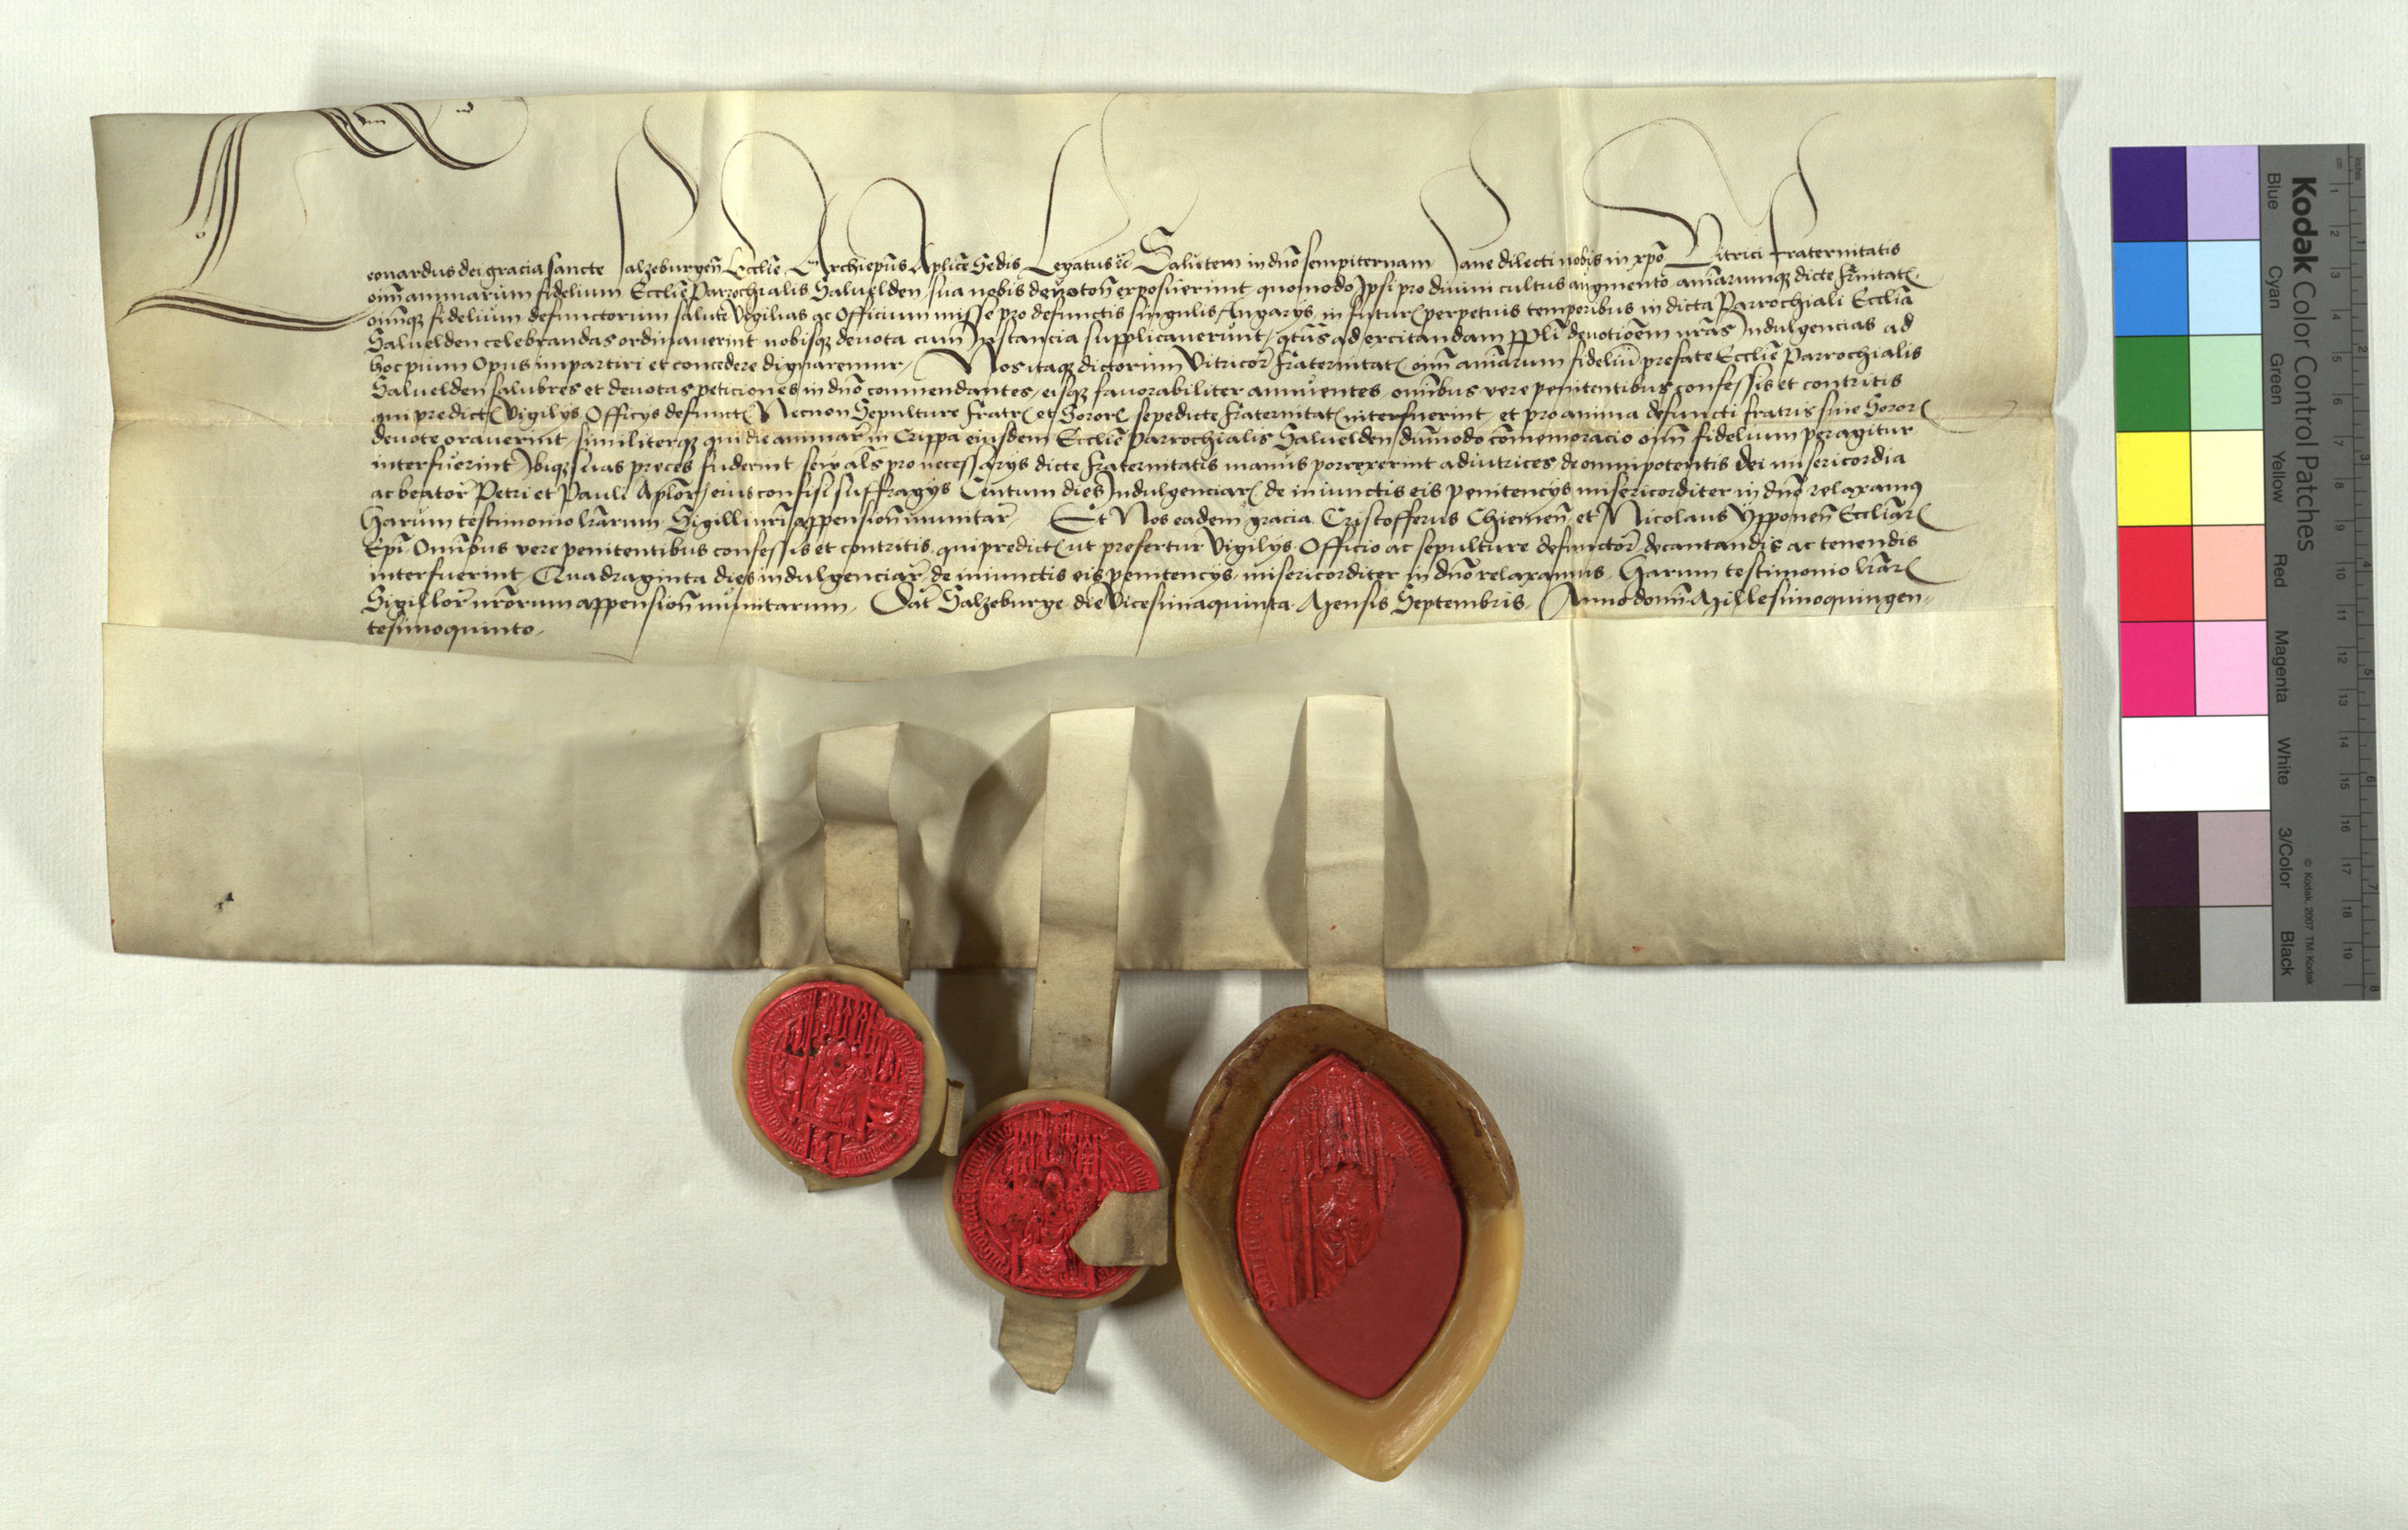 Leonardus dei gracia sancte Salzeburgeñ Ecclie Archiep̄us Ap̄lice Sedis Legatus &c̄ Salutem in dn̄o sempiternam Sane dilecti nobis in xp̄o Vitrici fraternitatis
oim̄ animarum fidelium Ecclie Parrochialis Salvelden sua nobis devotoñ exposuerint quomodo Ipsi pro divini cultus augmento am̄arumqȝ dicte fr̄nitat
om̄iqȝ fidelium defunctorum salute vigilias ac Officium misse pro defunctis singulis Angarys in futur perpetuis temporibus in dicta Parrochiali Ecclia
Salvelden celebrandas ordinaverint nobisqȝ devota cum Instancia supplicaverunt, qt̄us ad excitandam ppli devotioem nr̄as Indulgencias ad
hoc pium Opus impartiri et concedere dignaremur, Nos itaqȝ dictorum Vitricor̄ fraternitat oim̄ am̄arum fideliū prefate Ecclie Parrochialis
Salvelden salubres et devotas peticiones in dn̄o commendantes, eisqȝ favorabiliter annuentes omībus vere penitentibus confessis et contritis
qui predict vigilys Officys defunct Necnon Sepulture fratr et Soror sepedicte fraternitat interfuerint et pro anima defuncti fratris sive Soror
devote oraverint, similiterqȝ qui die animar̄ in Crippa eiusdem Ecclie Parrochialis Salvelden dum̄odo com̄emoracio oim̄ fidelium peragitur
interfuerint Ibiqȝ suas preces fuderint, seu al̄s pro necessarys dicte fraternitatis manus porrexerint adiutrices de omnipotentis dei misericordia
ac beator̄ Petri et Pauli Apl̄or eius confisi suffragys Centum dies Indulgenciar de iniunctis eis penitencys misericorditer in dn̄o relaxamȝ
Harum testimonio lr̄arum Sigilli nr̄i appensioñ munitar̄, Et Nos eadem gracia Cristofferus Chiemeñ et Nicolaus Ypponeñ Eccliar̄
Ep̄i Omībus vere penitentibus confessis et contritis qui predict ut prefertur vigilys Officio ac sepulture defunctor̄ decantandis ac tenendis
interfuerint, Quadraginta dies indulgenciar̄ de iniunctis eis penitencys misericorditer in dn̄o relaxamus, Harum testimonio lr̄ar
Sigillor̄ nr̄orum appensioñ munitarum, Dat̄ Salzeburge die vicesimaquinta Mensis Septembris, Anno domī Millesimoquingen-
tesimoquinto,
Kodak Color Control Patches
Blue Cyan Green Yellow Red Magenta White 3/Color Black
© Kodak, 2007 TM: Kodak
inches 1 2 3 4 5 6 7 8
cm 1 2 3 4 5 6 7 8 9 10 11 12 13 14 15 16 17 18 19